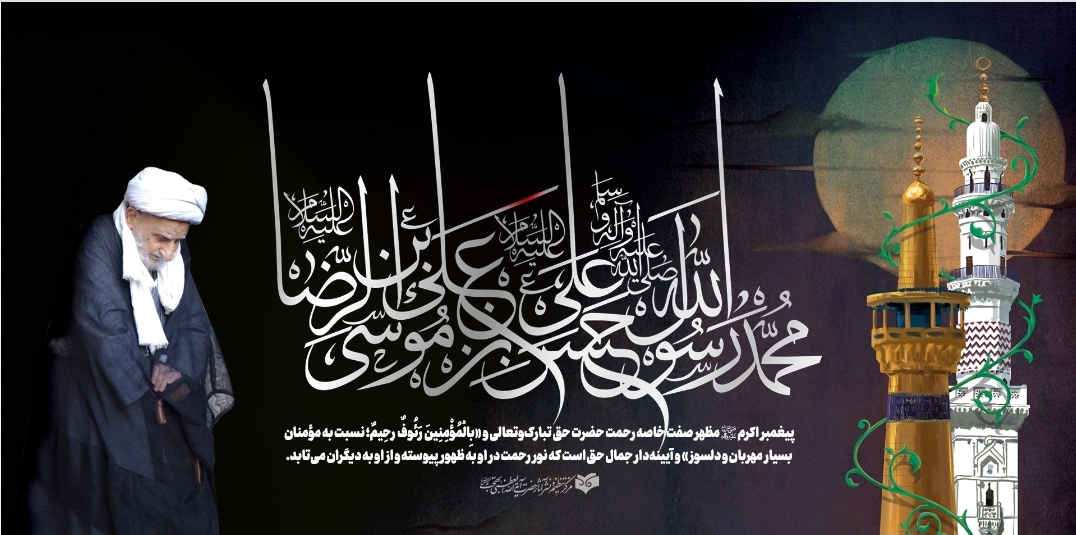 محمد رسول الله صلی الله علیه و آله و سلم
حسن بن علی علیه السلام
علی بن موسی الرضا علیه السلام
پیغمبر اکرم ﷺ مظهر صفت خاصه رحمت حضرت حق تبارک‌وتعالی و «بِالْمُؤْمِنِینَ رَئُوفٌ رحِیمٌ؛ نسبت به مؤمنان
بسیار مهربان و دلسوز» و آیینه‌دار جمال حق است که نور رحمت در او به ظهور پیوسته و از او به دیگران می‌تابد.
مرکز تنظیم و نشر آثار حضرت آیت‌الله العظمی بهجت